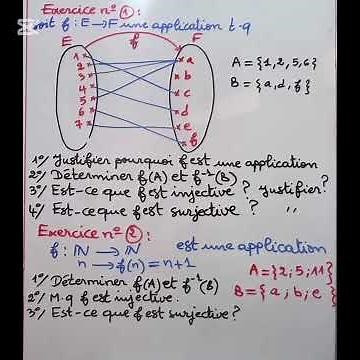 Exercice n° ①:
Soit f : E → F une application t-q
E f F
1
2
3
4
5
6
7
a
b
c
d
e
f
A = {1,2,5,6}
B = {a,d,f}
1°/ Justifier pourquoi f est une application
2°/ Déterminer f(A) et f⁻¹(B)
3°/ Est-ce que f est injective ? justifier?
4°/ Est-ce que f est surjective ? ''
Exercice n° ②:
f : ℕ → ℕ est une application
n → f(n) = n+1
A = {2;5;11}
1°/ Déterminer f(A) et f⁻¹(B)
B = {a;b;e}
2°/ M-q f est injective.
3°/ Est-ce que f est surjective ?